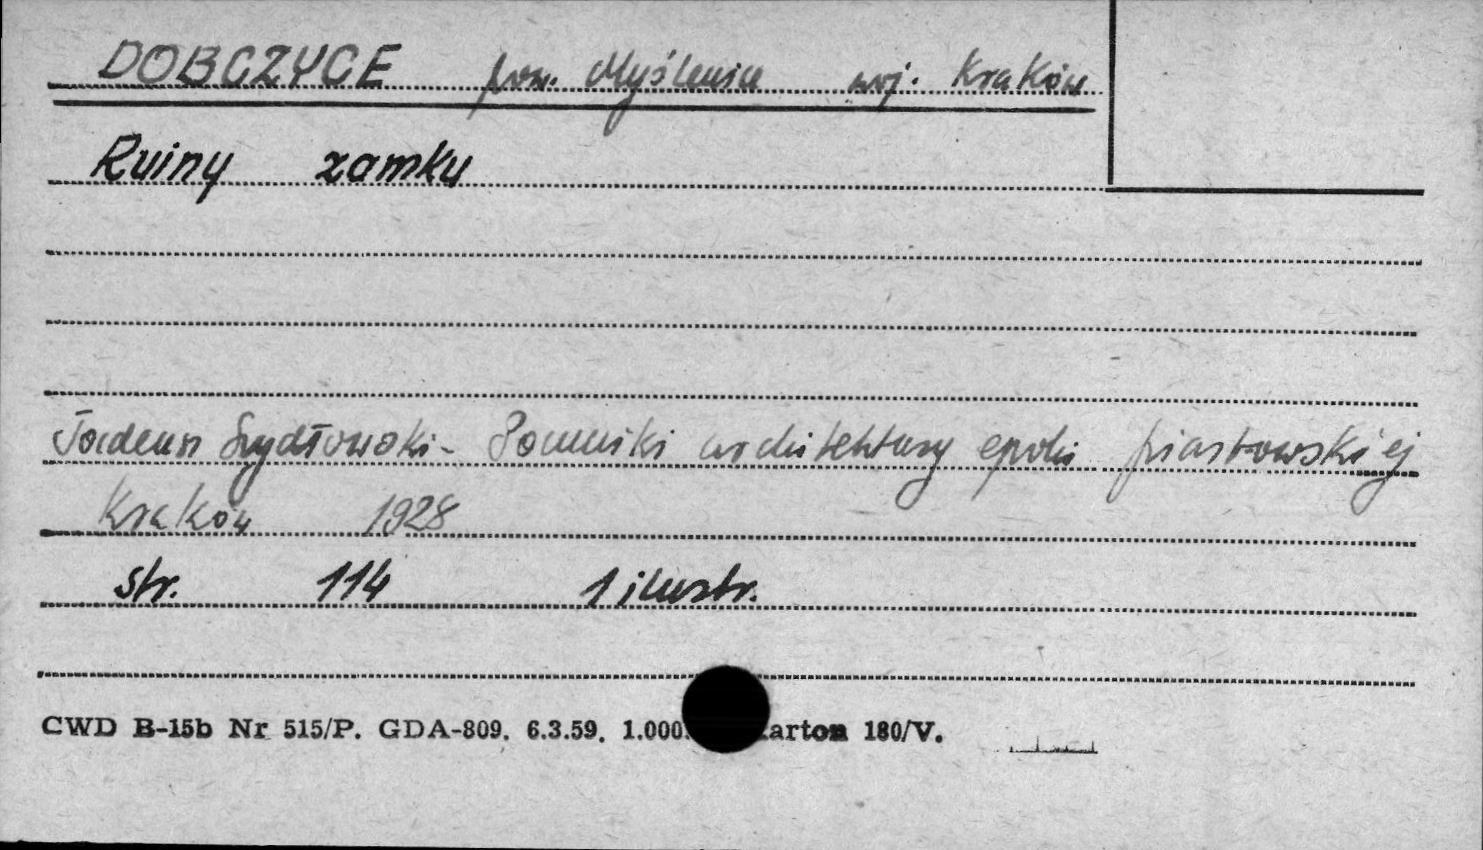 DOBCZYCE pow. Myślenice woj. Kraków
Ruiny zamku
Tadeusz Szydłowski - Pomniki architektury epoki piastowskiej
Kraków 1928
str. 114 1 ilustr.
CWD B-15b Nr 515/P. GDA-809. 6.3.59. 1.000. karton 180/V.